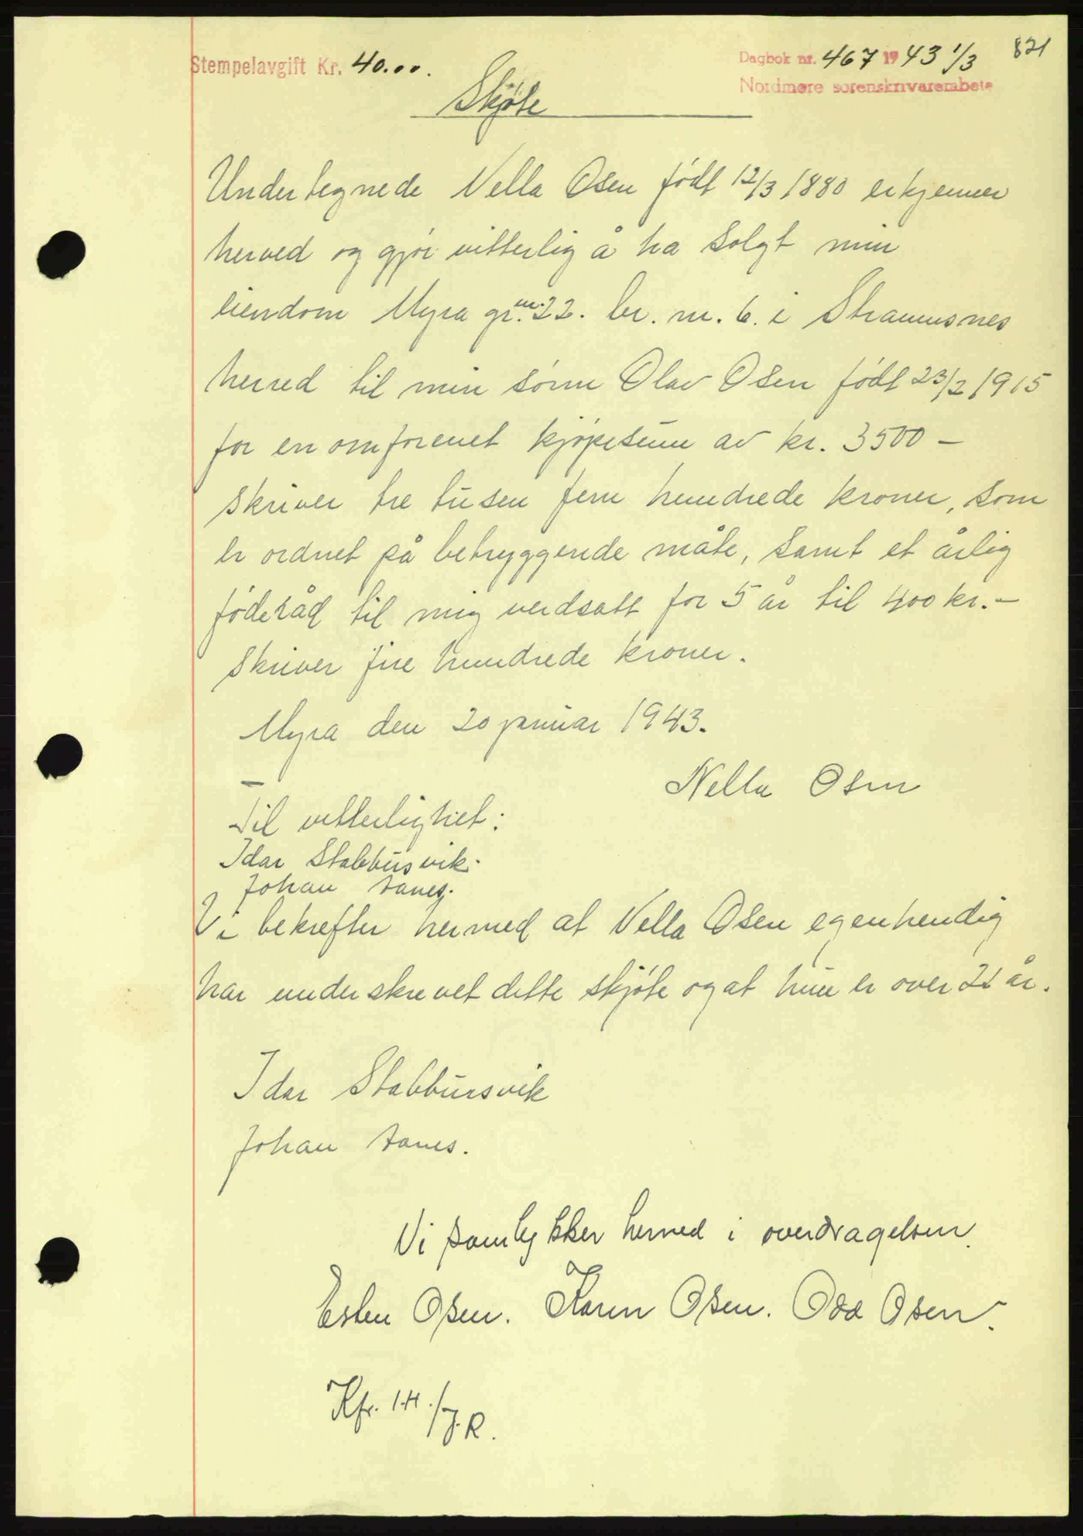 Stempelavgift Kr. 40.00.
Dagbok nr. 467 1943 1/3
821
Nordmøre sorenskrivarembete
Skjøte
Undertegnede Nella Osen født 12/3 1880 erkjenner
herved og gjør vitterlig å ha solgt min
eiendom Myra gr.nr. 22. br. nr. 6. i Straumsnes
herred til min sønn Olav Osen født 23/2 1915
for en omforenet kjøpesum av kr. 3500 –
skriver tre tusen fem hundrede kroner, som
er ordnet på betryggende måte, samt et årlig
føderåd til mig verdsatt for 5 år til 400 kr. –
skriver fire hundrede kroner.
Myra den 20 januar 1943.
Nella Osen
Til vitterlighet:
Idar Stabbursvik.
Johan Aanes.
Vi bekrefter hermed at Nella Osen egenhendig
har underskrevet dette skjøte og at hun er over 21 år.
Idar Stabbursvik
Johan Aanes.
Vi samtykker herved i overdragelsen.
Esten Osen. Karen Osen. Odd Osen.
Kfr. I.H./J.R.